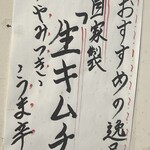 おすすめの逸品
自家製
「生キムチ
やみつき
うま辛